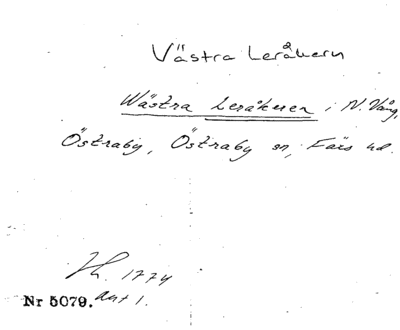 Västra Leråkern
Wästra Leråkeren i N. Vång,
Östraby, Östraby sn, Färs hd.
Lh. 1774
Nr 5079. akt 1.